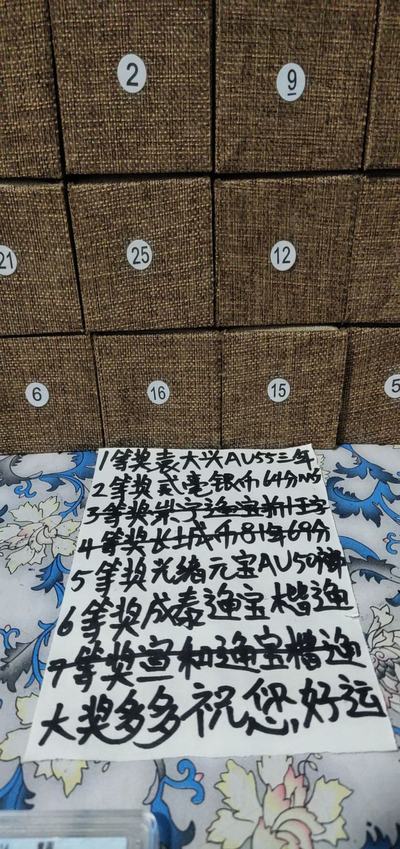 2
9
21
25
12
6
16
15
5
1等奖袁大头AU55三年
2等奖贰毫银币64分NGC
3等奖崇宁通宝
4等奖长城币81年69分
5等奖光绪元宝AU50
6等奖咸泰通宝楷通
7等奖宣和通宝楷通
大奖多多祝您好运